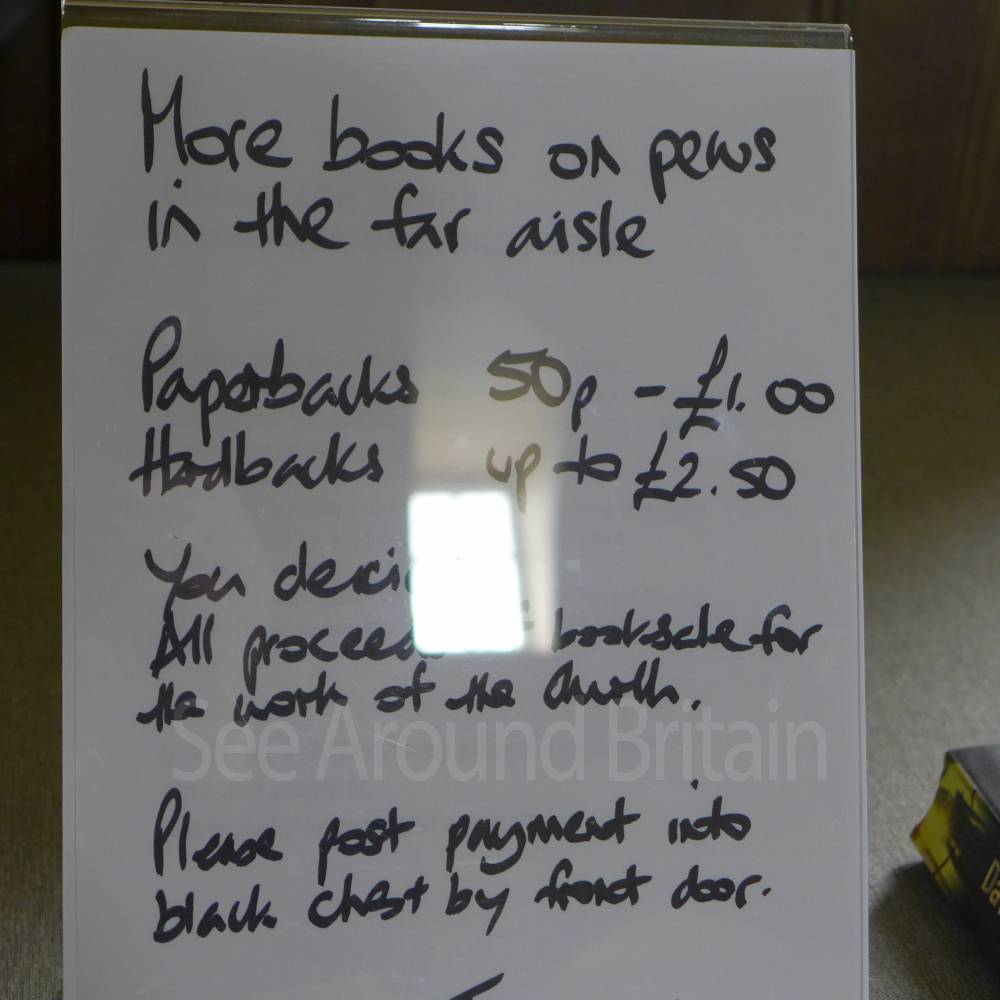 More books on pews
in the far aisle
Paperbacks 50p - £1.00
Hardbacks up to £2.50
You
All booksale for
the work of the Church.
See Around Britain
Please post payment into
black chest by front door.